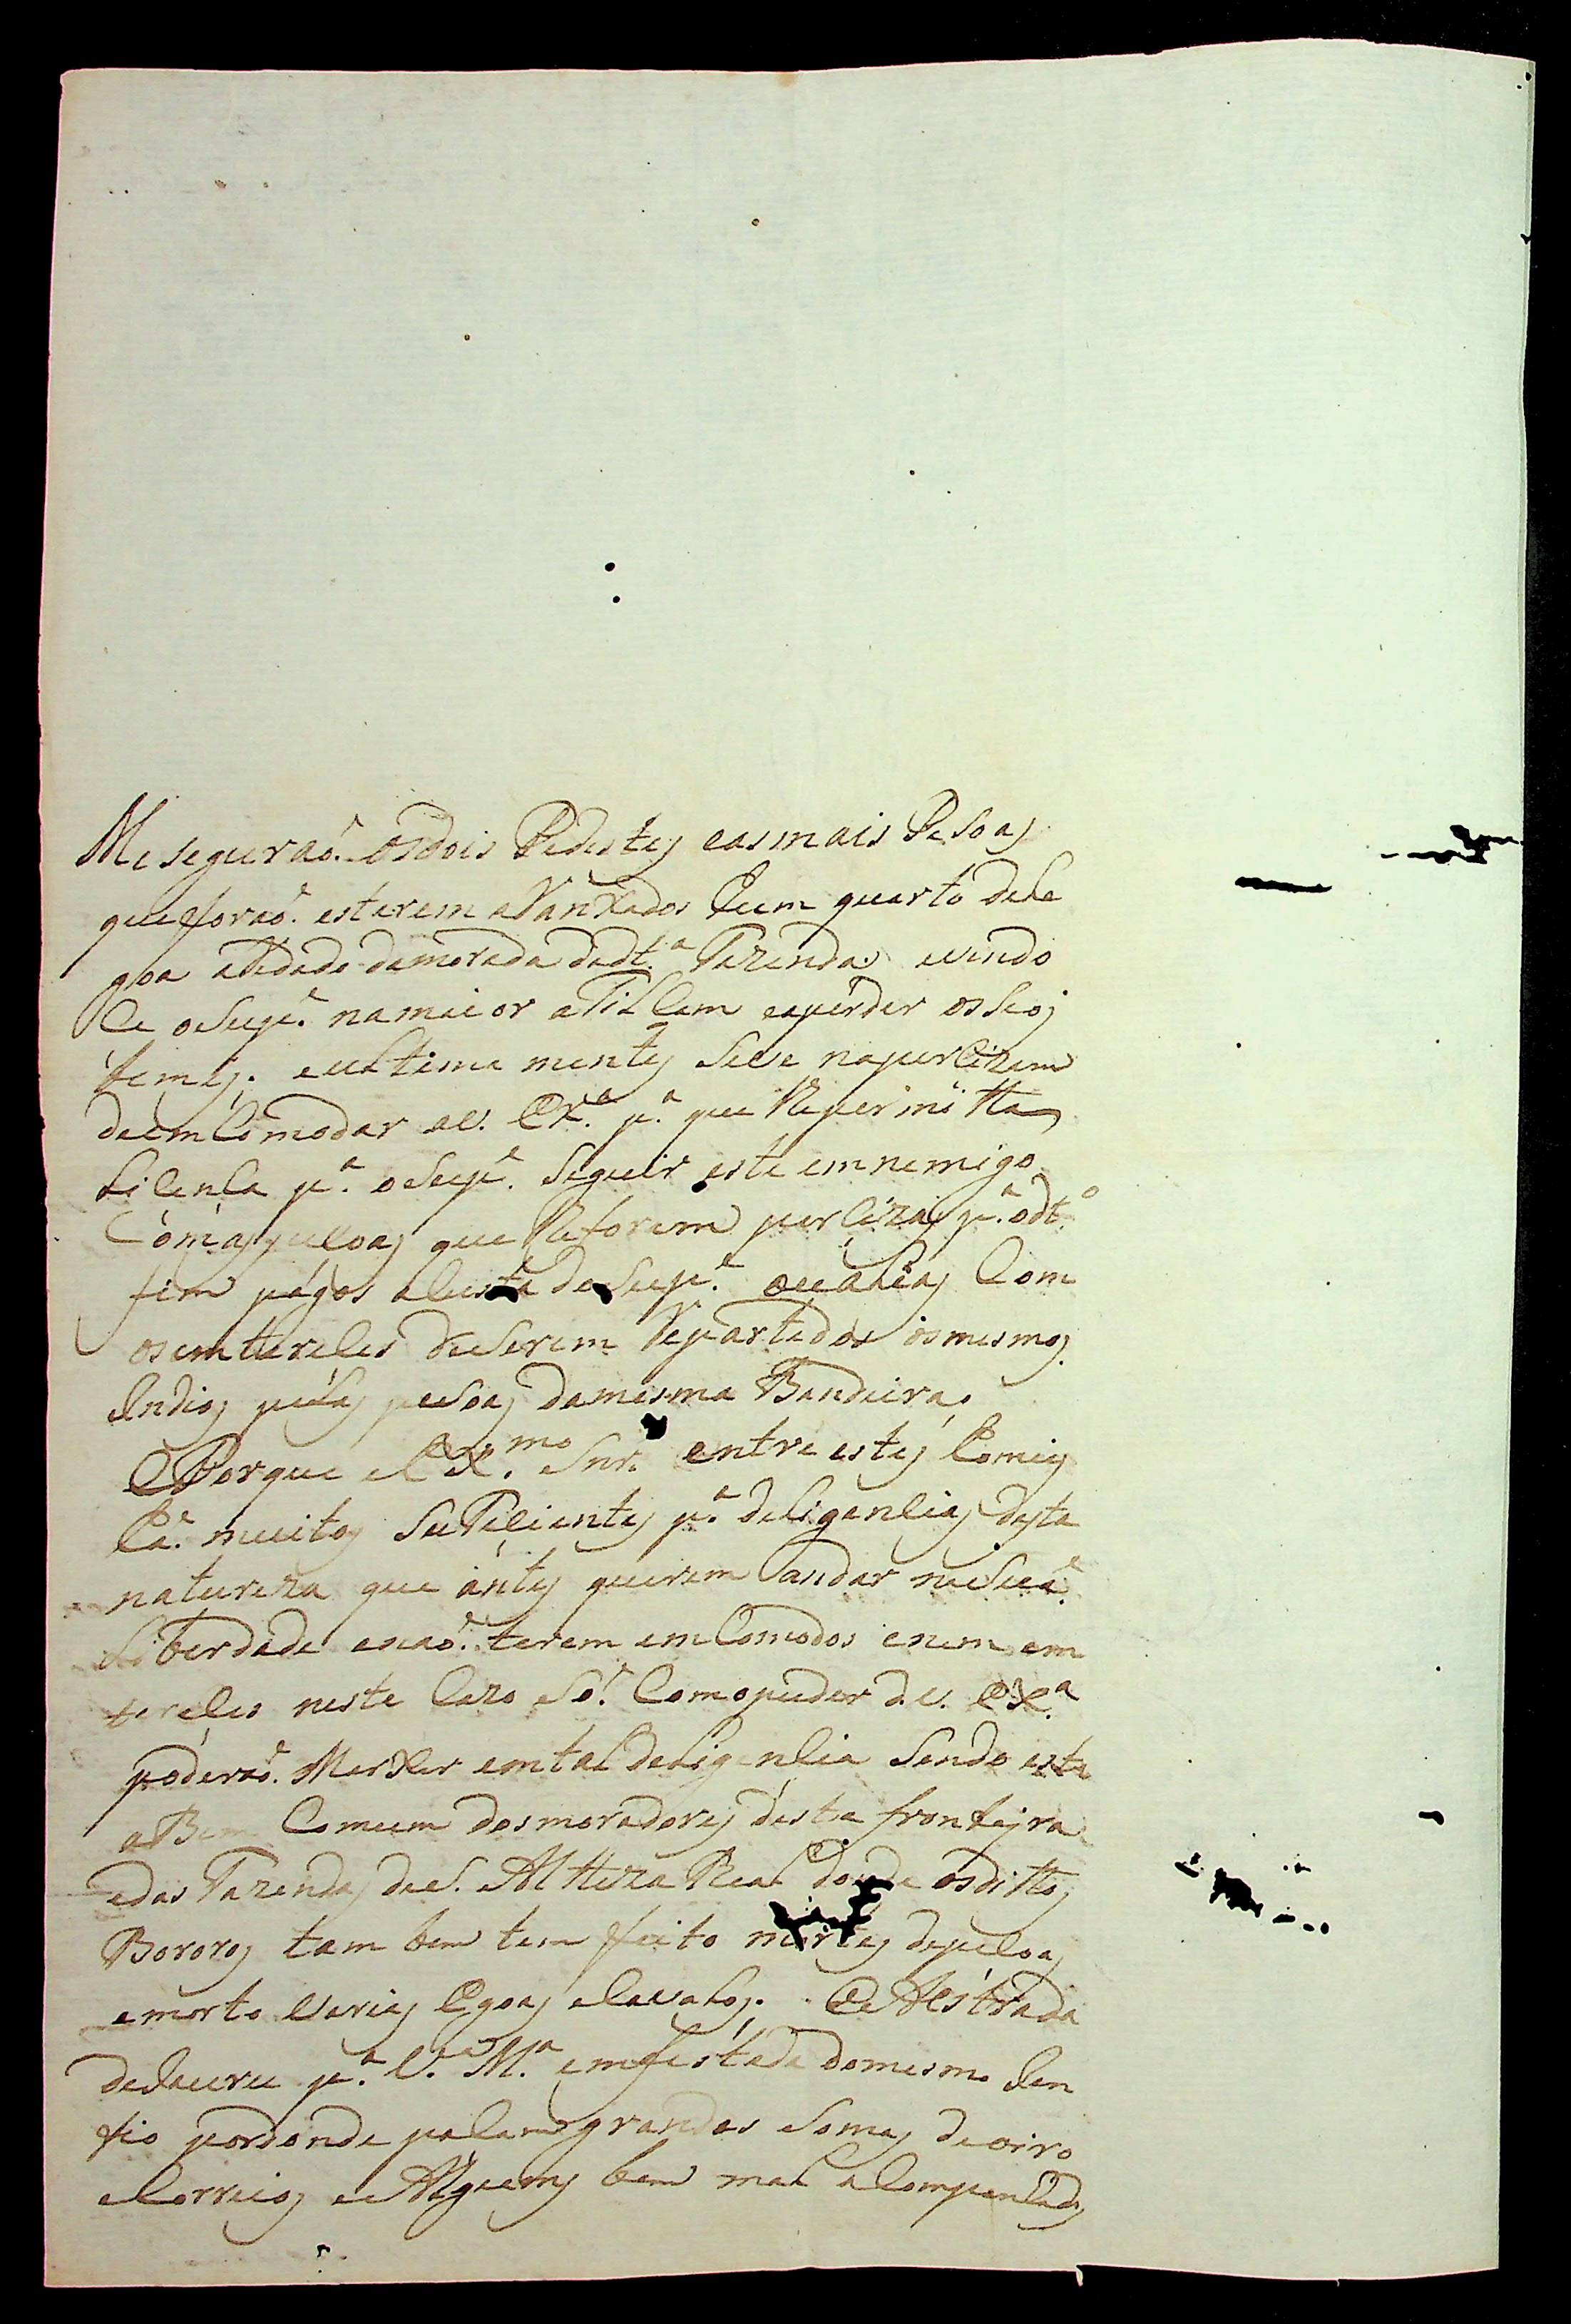 Me segurão. os dois Pedestes eas mais Pesoas
que forão. estarem aRanxados hum quarto dele
goa a Redado damorada dadt.ª Fazenda. evendo
Ce oSupe. na maior a Filsam eaperder osSeos
bems. eultima mente Seve naperCizam
de emComodar aV. EX.ª p.ª que lhe permitta
LiCenSa p.ª oSupe. Seguir este emnemigo
Com as pesoas que lhe forem perCizas p.ª odt.º
fim págos aCusta doSupe. Com
osemtereSes deSerem Repartidos os mesmos
Indios pelas pesoas damesma Bandeira.
E Porque EX.mo Snr. entre estes Comig
Cá. muitos SuFiCientes p.ª deligenCias desta
natureza que ántes querem andar na Sua
Liberdade enão. terem emComodos enem em
tereSes neste Cazo eSó. Comopuder d.V. EX.ª
poderão. MarXar emtal deligenSia Sendo esta
aBem Comum dosmoradores desta fronteyra
edas Fazendas deS. AltteZa Real donde osdittos
Bororos tam bem tem feito mortes depesoas
emorto Varias Egoas eCavalos. E AEstrada
deJauru p.ª V.ª M.ª emfestada domesmo Jen
tio pordonde paSam grandes Somas deoiro
eCorreios e Alguems bem mal aCompanhados